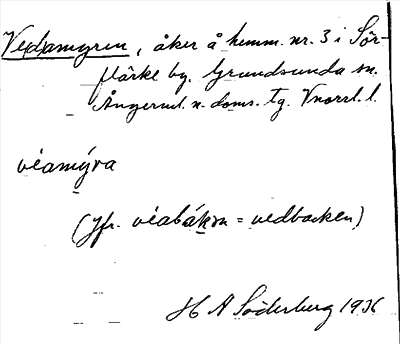 Vedamyren, åker å hemm. nr. 3 i Sör-
flärke by. Grundsunda sn.
Ångerml. n. doms. tg. Vnorrl. l.
véamýra
(Jfr. véabákɳ = vedbacken)
H A Söderberg 1936